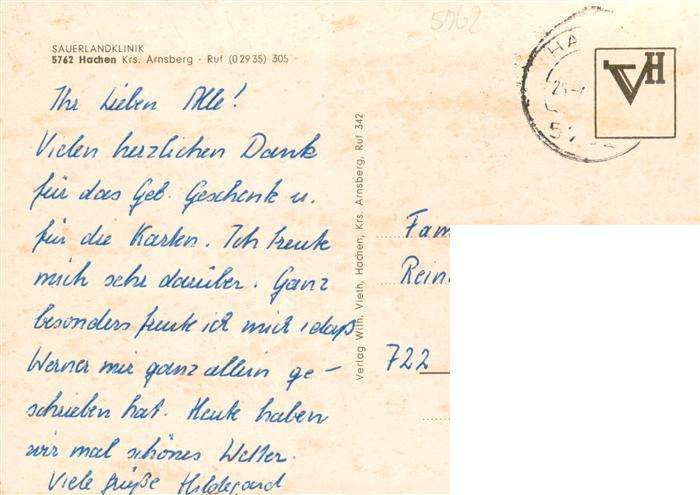 5762
SAUERLANDKLINIK
5762 Hachen Krs. Arnsberg · Ruf (0 29 35) 305
VH
Ihr Lieben Alle!
Vielen herzlichen Dank
für das Geb. Geschenk u.
für die Karten. Ich freute
mich sehr darüber. Ganz
besonders freute ich mich, daß
Werner mir ganz allein ge-
schrieben hat. Heute haben
wir mal schönes Wetter.
Viele Grüße Hildegard
Verlag Wilh. Vieth, Hachen, Krs. Arnsberg, Ruf 342
Fam
Rein
722